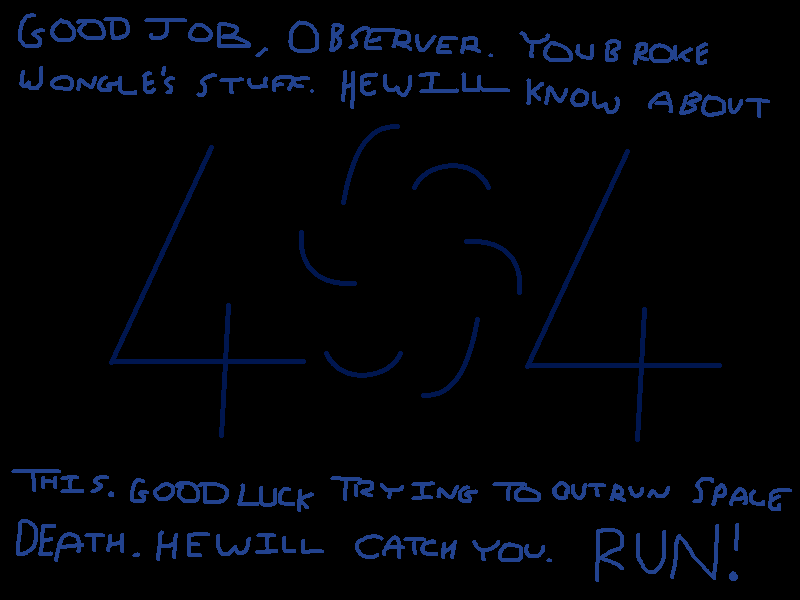 GOOD JOB, OBSERVER. YOU BROKE
WONGLE'S STUFF. HE WILL KNOW ABOUT
404
THIS. GOOD LUCK TRYING TO OUTRUN SPACE
DEATH. HE WILL CATCH YOU. RUN!